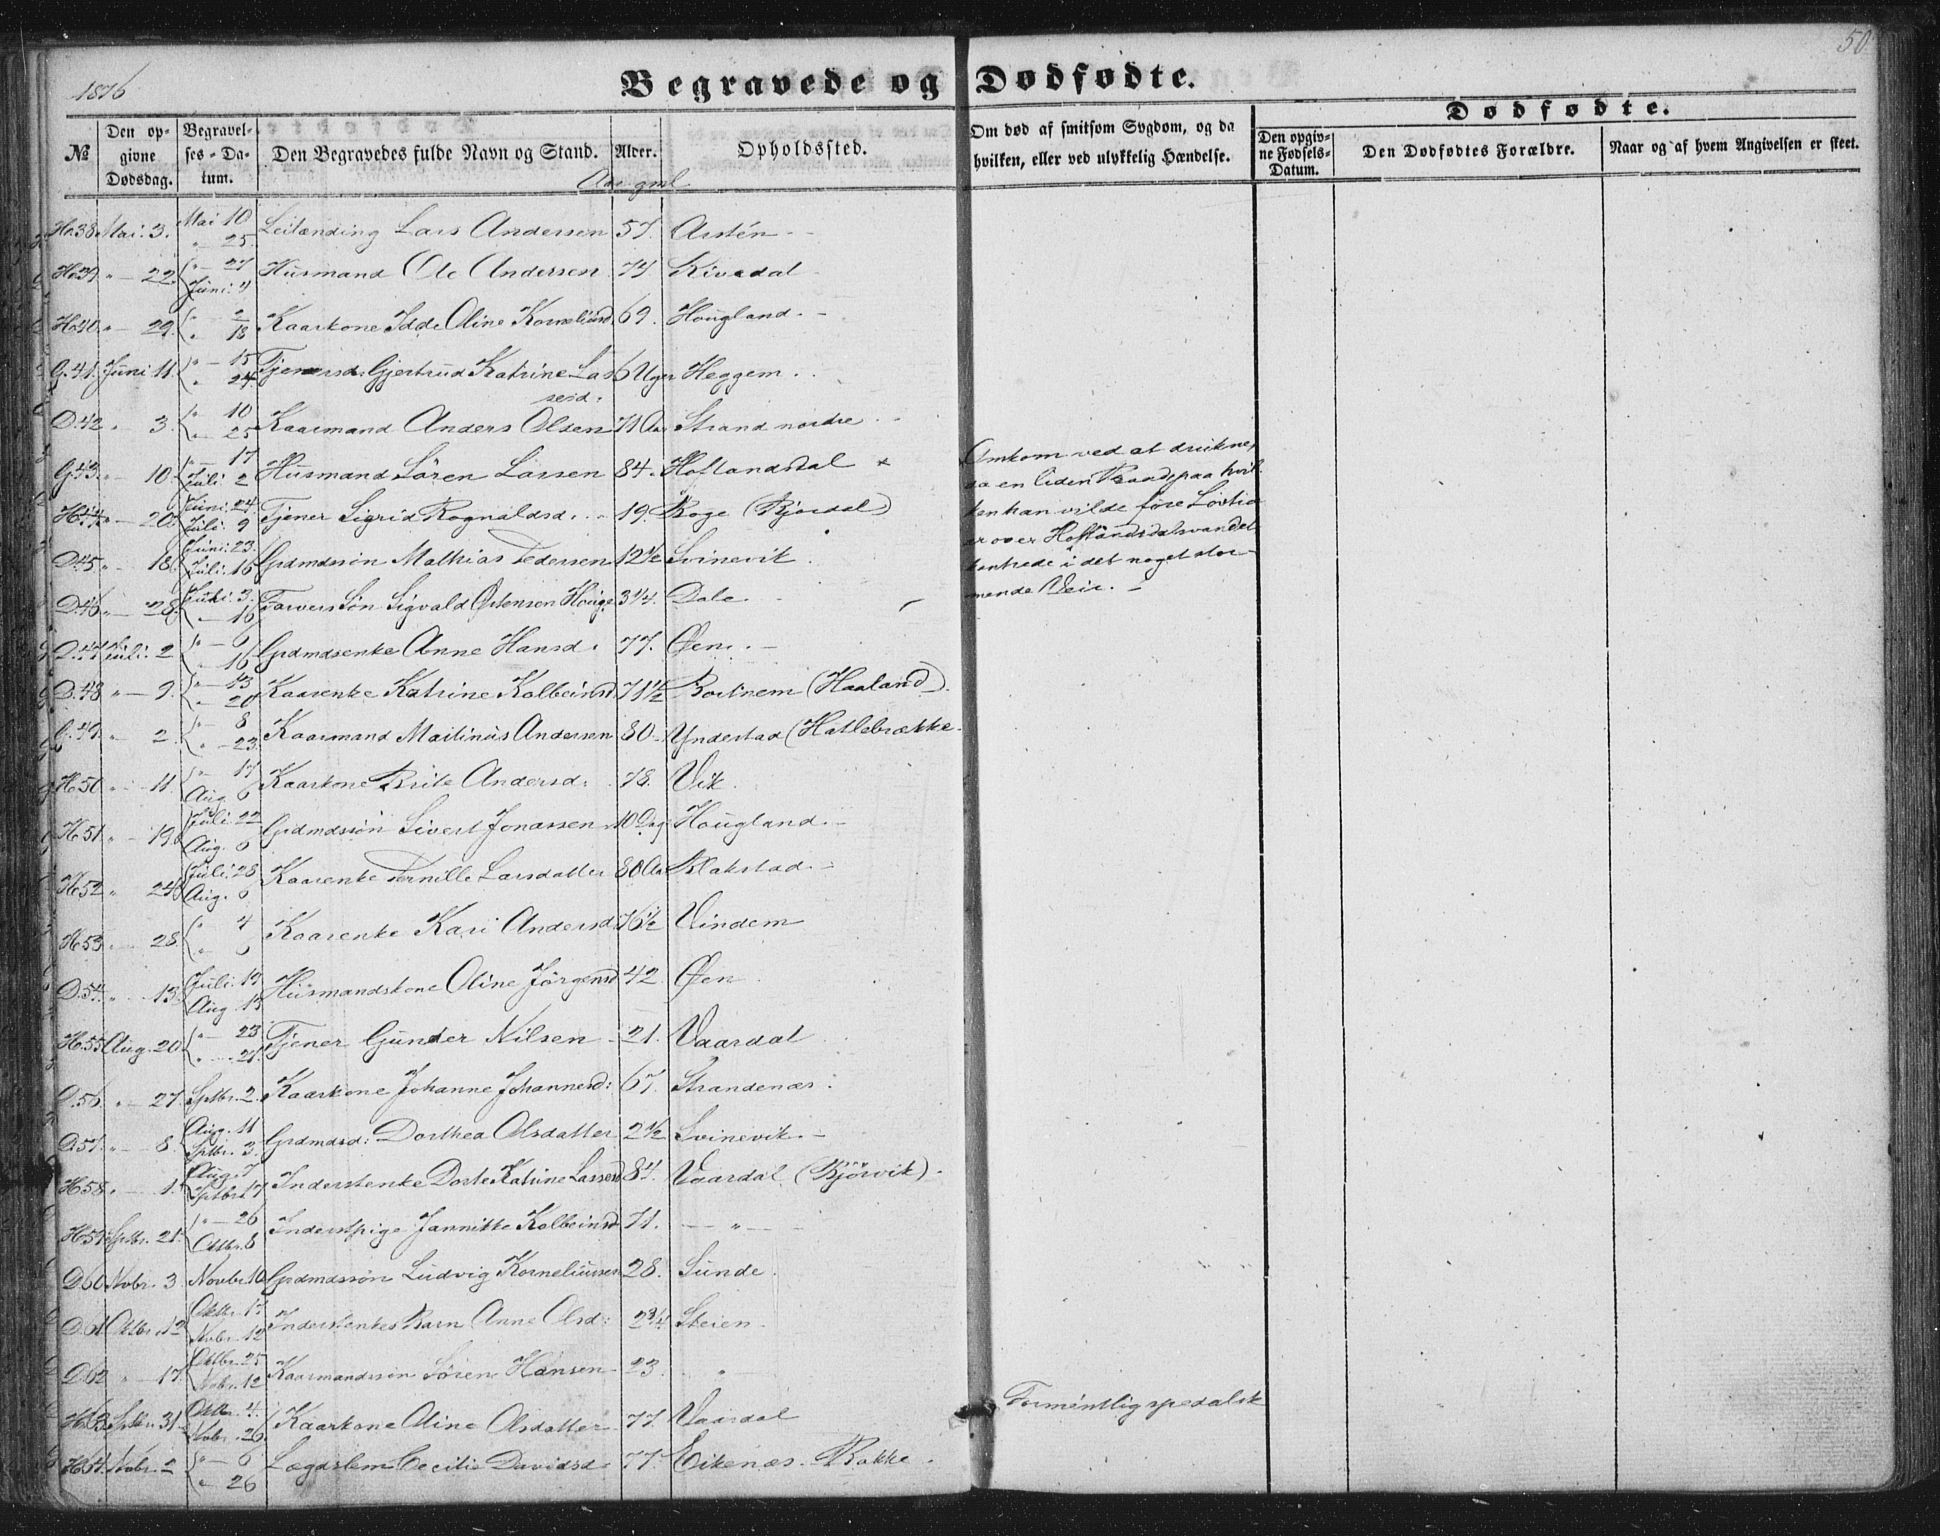 1876
50.
Begravede og Dødfødte.
Dødfødte.
№
Den opgivne Dødsdag.
Begravelses-Datum.
Den Begravedes fulde Navn og Stand.
Alder.
Opholdssted.
Om død af smitsom Sygdom, og da hvilken, eller ved ulykkelig Hændelse.
Den opgivne Fødsels-Datum.
Den Dødfødtes Forældre.
Naar og af hvem Angivelsen er skeet.
Aar gml
H.38. Mai. 3. Mai 10 " 25. Leilænding Lars Andersen 57. Arstén
H.39 " 22. " 27 Juni. 4 Husmand Ole Andersen 74 Kivedal
H.40. " 29. " 2 " 18 Kaarkone Idde Oline Kornelius d. 69. Hougland.
G.41. Juni 11. " 15 " 24. Tjenersd: Gjertrud Katrine Las 6 Uger Heggem.
sesd.
D.42 " 3. " 10 " 25 Kaarmand Anders Olsen 71 Aar Strand nordre
G.43. " 10. " 17 Juli 2 Husmand Sören Larsen 84. Hoflandsdal ×
H.44 " 20. Juni. 24. Juli. 9 Tjener Sigrid Rognaldsd. 19. Boge (Bjordal)
D.45 " 18. Juni: 23. Juli. 16 Grdmdssön Mathias Pedersen 12 1/2 Svinevik.
D.46 " 28. Juli 3. " 16 Farvers Sön Sigvald Østensen Houge 3 1/4. Dale
D.47 Juli. 2 " 6 " 16 Grdmdsenke Anne Hansd. 77. Øen.
D.48 " 9. " 13 " 20 Kaarenke Katrine Kolbeinsd 71 1/2 Bortnem (Haaland).
G.49. " 2. " 8 " 23. Kaarmand Martinus Andersen 80. Yndestad (Hatlebrække
H.50 " 11. " 17 Aug. 6 Kaarkone Brite Andersd. 78. Vik.
H.51 " 19. Juli. 22 Aug. 6 Grdmdssön Sivert Jonassen 10 Dag. Hougland.
H.52 " 24. Juli. 28 Aug. 6 Kaarenke Pernille Larsdatter 80 Aar Blakstad.
H.53 " 28. " 4 " 6 Kaarenke Kari Andersd 76 1/2 Vindem
D.54. " 13. Juli. 19 Aug. 13 Husmandskone Oline Jörgensd 42 Øen
H.55 Aug. 20. " 23 " 27. Tjener Gunder Nilsen 21. Vaardal
D.56. " 27. Sptbr. 2. Kaarkone Johanne Johannesd: 67. Strandenæs.
D.57. " 8. Aug. 11 Sptbr. 3. Grdmdsd: Dorthea Olsdatter 2 1/2 Svinevik.
H.58. " 1. Aug. 7 Sptbr. 17 Inderstenke Dorte Katrine Lassesd 84. Vaardal (Bjørvik).
H.59 Sptbr. 21. " 26 Oktbr. 8 Inderstpige Jannikke Kolbeinsd 71. "
D.60 Novbr. 3. Novbr. 10 Grdmdssön Ludvig Korneliussen 28. Sunde.
D.61 Oktbr. 12 Oktbr. 17 Novbr. 12 Inderstenkes Barn Anne Olsd: 2 3/4 Steien.
D.62 " 17. Oktbr. 25 Novbr. 12 Kaarmandssön Sören Hansen 23. "
H.63 Sptbr. 31. Oktbr. 4. Novbr. 26 Kaarkone Oline Olsdatter 77. Vaardal
H.64. Novbr. 2 " 6 " 26 Lægdslem Cecilie Davidsd. 77. Eikenæs. Bakke.
Omkom ved at drukne,
da en liden Baad, paa hvil-
ken han vilde före Lövtiæ
er over Hoflandsdalsvandet
kantrede i det noget stor-
mende Veir.
Formentlig spedalsk